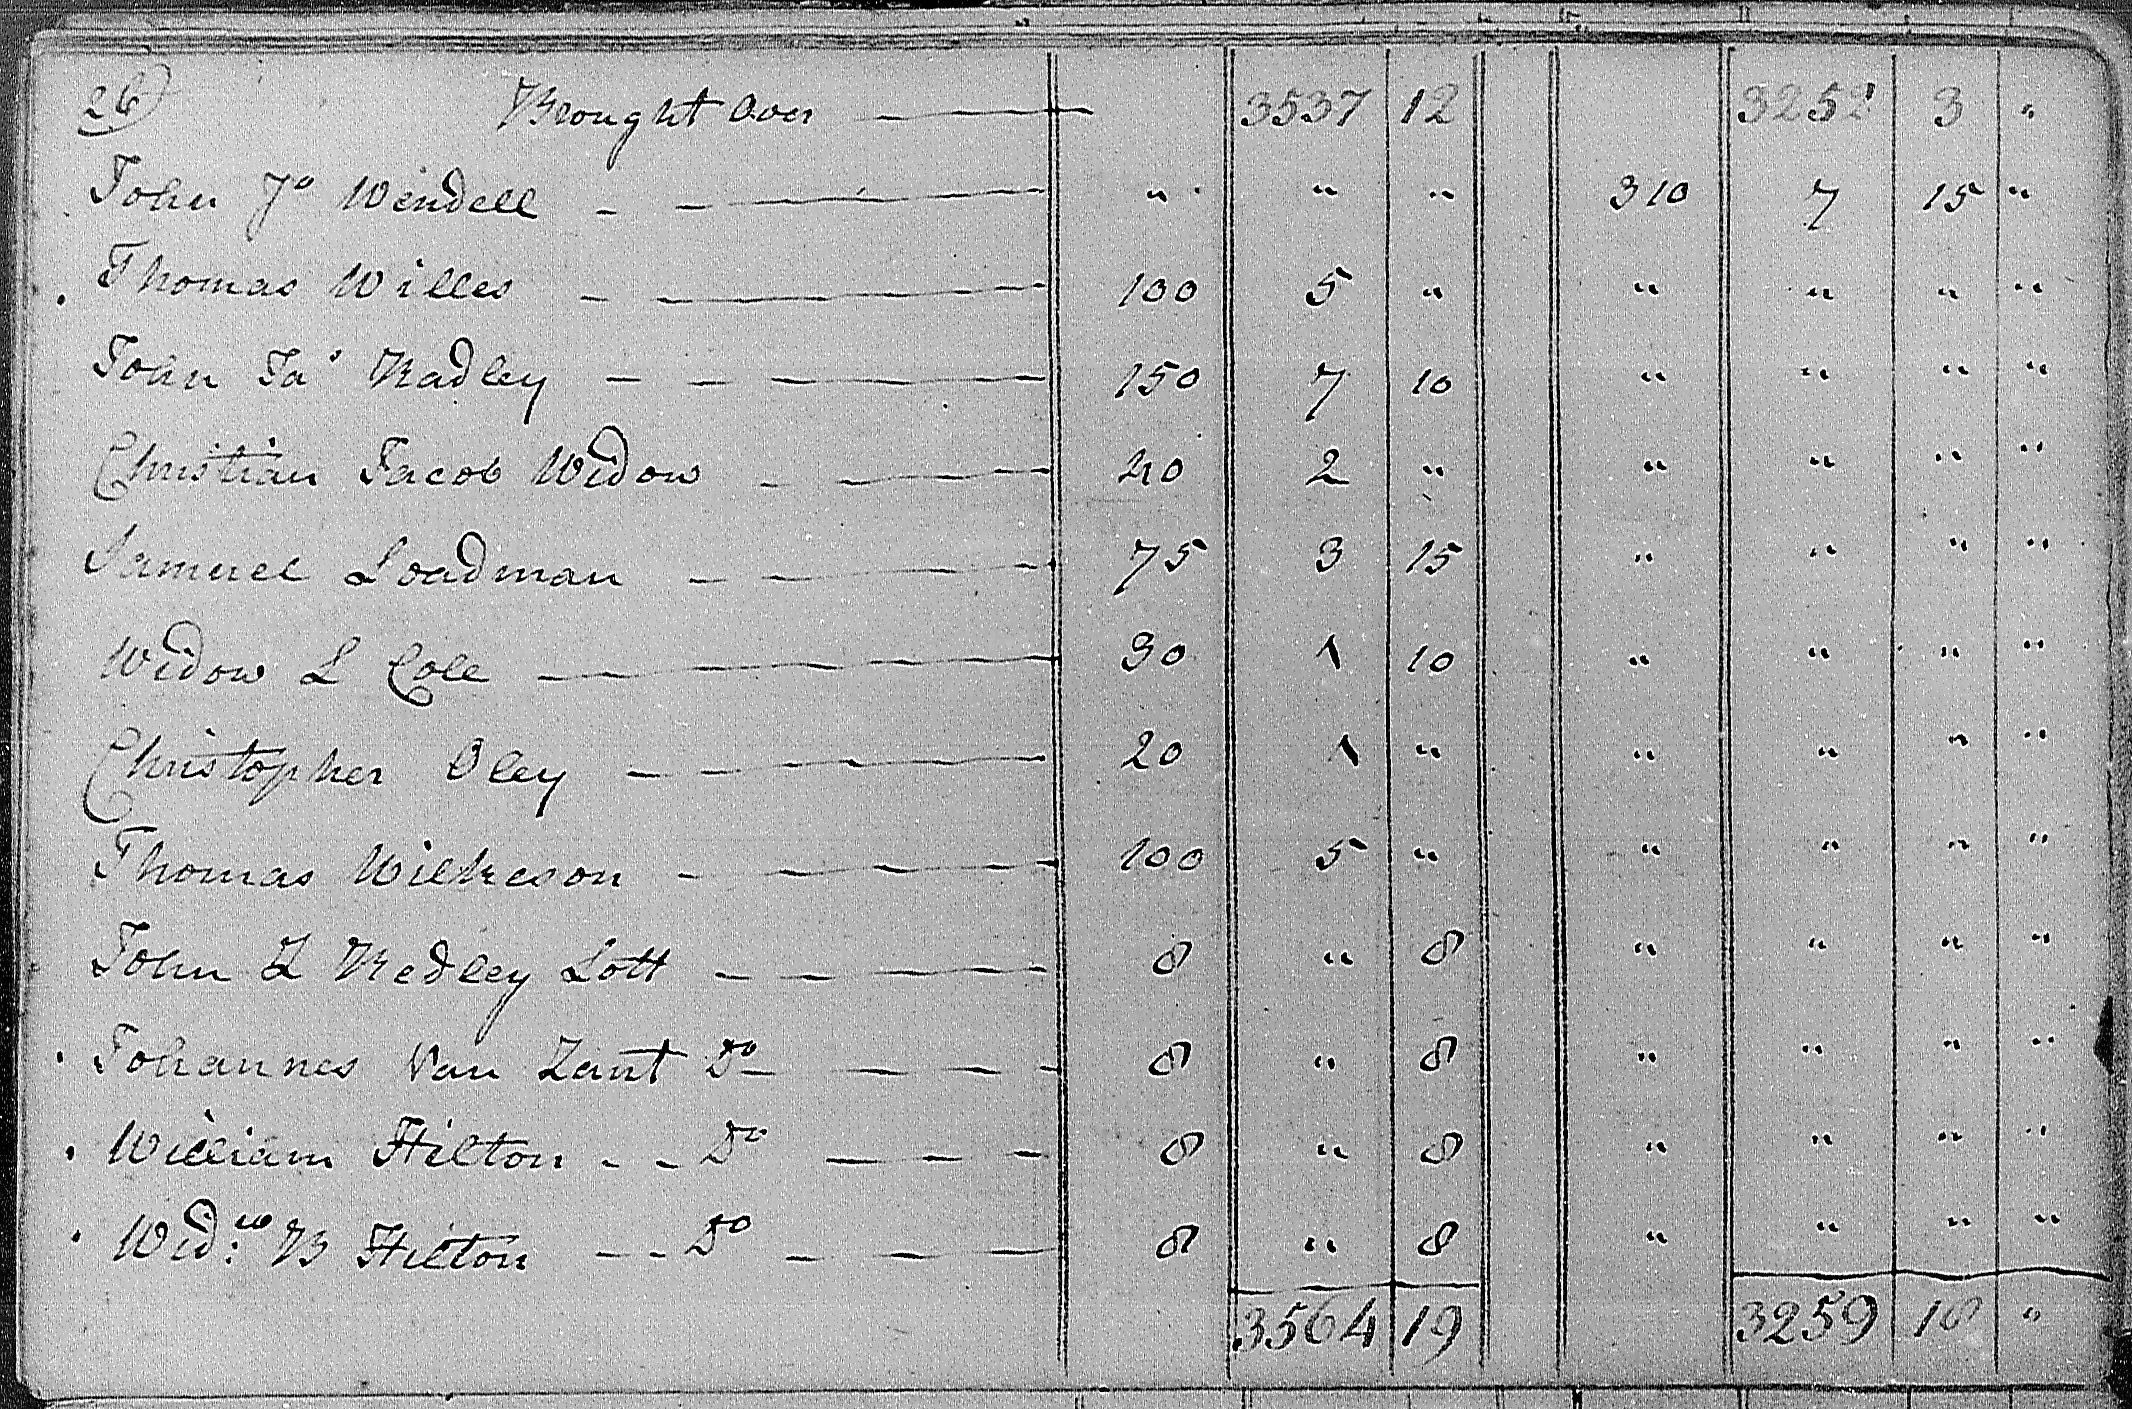 26 Brought Over 3537 12 3252 3 "
John Jo Wendell " " " 310 7 15 "
Thomas Willes 100 5 " " " " "
John Ja' Radley 150 7 10 " " " "
Christian Jacob Widow 40 2 " " " " "
Samuel Loadman 75 3 15 " " " "
Widow L Cole 30 1 10 " " " "
Christopher Oley 20 1 " " " " "
Thomas Wilkeson 100 5 " " " " "
John L Redley Lott 8 " 8 " " " "
Johannes Van Zant Do 8 " 8 " " " "
William Hilton Do 8 " 8 " " " "
Wid:w B Hilton Do 8 " 8 " " " "
3564 19 3259 18 "